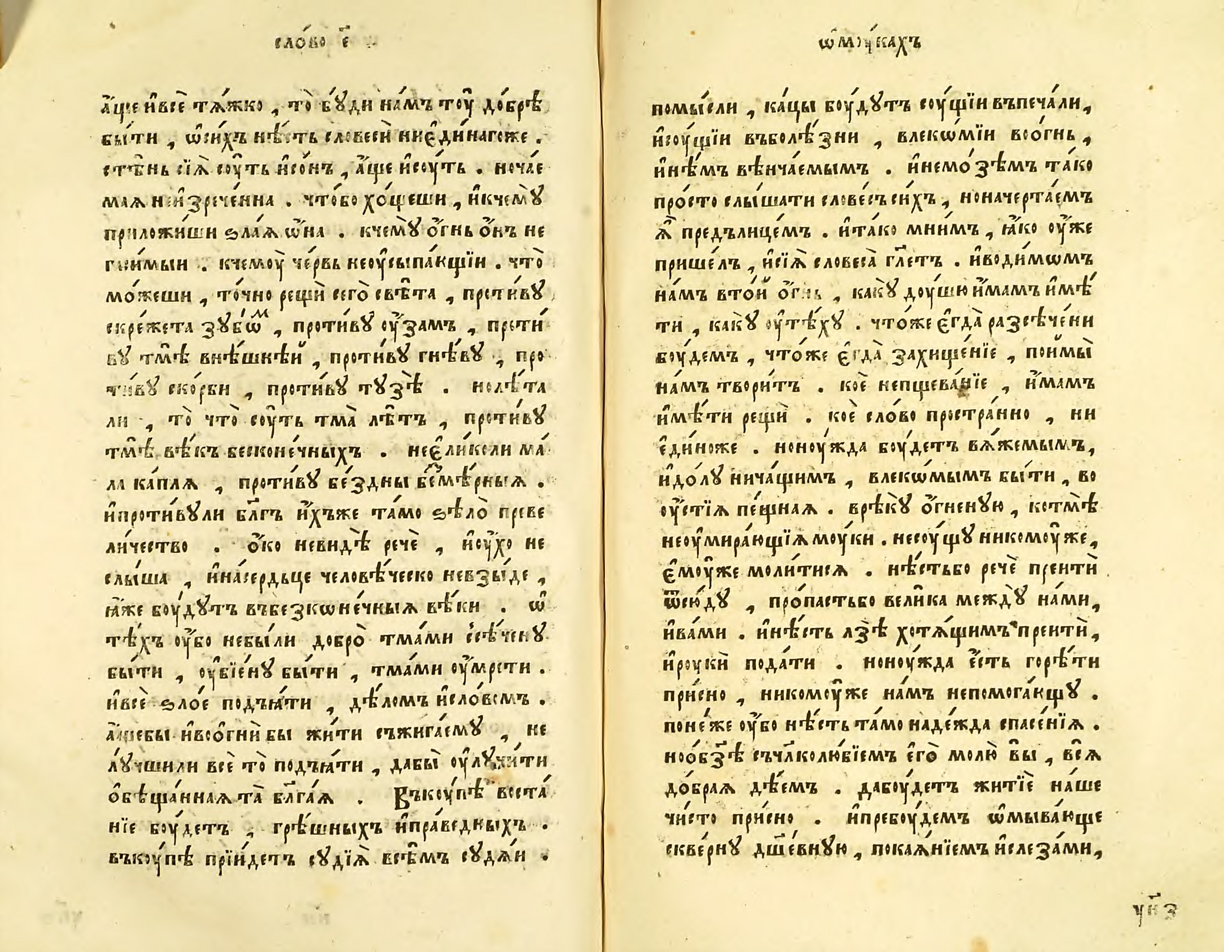 сло́во є҃
а҆́ще и҆всѐ тѧ́жко , то бꙋ́ди на́мъ тоу̀ до́брѣ
бы́ти , ѡ҆си́хъ нѣ́сть словесѝ ниє҆ди́нагоже .
стѣ́нь сїѧ̀ соу́ть и҆со́нъ , а҆́ще и҆соу́ть . ноча́е
маѧ неи҆зрече́нна . что́бо хо́щеши , и҆кчемꙋ̀
приложи́ши ѕла́ѧ ѡ҆́на . кчемꙋ̀ ѻ҆́гнь ѻ҆́нъ не
гаси́мыи . кчемоу̀ че́рвь неоусыпа́ющїи . что̀
мо́жеши , то́чно рещѝ сего̀ свѣ́та , проти́вꙋ
скре́жета зꙋбѡ́м , проти́вꙋ оу҆́замъ , проти́
вꙋ тмѣ̀ внѣ́шнѣи , проти́вꙋ гнѣ́вꙋ , про
ти́вꙋ ско́рби , проти́вꙋ тꙋзѣ̀ . нолѣ́та
ли , то̀ что̀ соу́ть тма̀ лѣ́тъ , проти́вꙋ
тмѣ̀ вѣ́къ бесконе́чныхъ . неє҆ли́коли ма́
ла ка́плѧ , проти́вꙋ бе́здны безмѣ́рныѧ .
и҆проти́вꙋли бл҃гъ и҆́хъже та́мо ѕѣло̀ преве
ли́чество . ѻ҆́ко неви́дѣ речѐ , и҆оу́хо не
слы́ша , и҆насе́рдьце человѣ́ческо невзы́де ,
ꙗ҆́же боу́дутъ вбезкѡне́чныѧ вѣ́ки . ѿ
тѣ́хъ оу҆̀бо небы́ли добро̀ тма́ми ссѣ́ченꙋ
бы́ти , оу҆бїе́нꙋ бы́ти , тма́ми оу҆мре́ти .
и҆всѐ ѕло́е подъꙗ́ти , дѣ́ломъ и҆сло́вомъ .
а҆́щебы и҆всо́гни́ бы жи́ти съжига́емꙋ , не
лꙋ́чшили всѐ то̀ подъꙗ́ти , дабы̀ оу҆лꙋчи́ти
ѻ҆бѣща́ннаѧ та̀ бл҃га́ѧ . Въкоу́пѣ воста́
нїе боу́детъ , грѣ́шныхъ и҆пра́ведныхъ .
въкоу́пѣ прїи́детъ сꙋдїѧ̀ всѣ́мъ сꙋдѧ́и .
ѡ҆мꙋ́кахъ
помы́сли , ка́цы боу́дутъ соу́щїи въпеча́ли ,
и҆соу́щїи въболѣ́зни , влеко́мїи во́ѻгнь ,
и҆нѣ́мъ вѣнча́емымъ . и҆немо́зѣмъ та́ко
про́сто слы́шати слове́съ си́хъ , ноначерта́емъ
ѧ҆̀ предълице́мъ . и҆та́ко мни́мъ , ꙗ҆́ко оу҆́же
прише́лъ , и҆сїѧ̀ словеса̀ гл҃етъ . и҆води́мѡмъ
на́мъ вто́й ѻ҆́гнь , ка́кꙋ до́ушю и҆́мамъ и҆мѣ́
ти , ка́кꙋ оу҆тѣ́хꙋ . что́же є҆гда̀ разсѣ́чени
боу́демъ , что́же є҆гда̀ захище́нїе , пои҆мы̀
на́мъ твори́тъ . ко́е непщева́нїе , и҆́мамъ
и҆мѣ́ти рещѝ . ко́е сло́во простра́нно , ни
є҆ди́ноже . ноноу́жда боу́детъ вѧ́жемымъ ,
и҆до́лꙋ нича́щимъ , влеко́мымъ бы́ти , во
оу҆́стїѧ пе́щнаѧ . врѣ́кꙋ ѻ҆́гненую , ко́тмѣ
неоумира́ющїѧ мо́уки . несоу́щꙋ никомоу́же ,
є҆моу́же моли́тисѧ . нѣ́стьбо речѐ преитѝ
ѿсю́дꙋ , про́пастьбо вели́ка междꙋ̀ на́ми ,
и҆ва́ми . и҆нѣ́сть лзѣ̀ хотѧ́щимъ преитѝ ,
и҆роукѝ пода́ти . ноноу́жда є҆́сть горѣ́ти
при́сно , никомоу́же на́мъ непомога́ющꙋ .
поне́же оу҆̀бо нѣ́сть та́мо наде́жда спасе́нїѧ .
ноо́бзѣ съчл҃колю́бїемъ є҆го̀ молю̀ вы̀ , всѧ̀
до́браѧ дѣ́емъ . дабоу́детъ житїѐ на́ше
чи́сто при́сно . и҆пребоу́демъ ѡ҆мыва́юще
скве́рнꙋ дш҃е́вную , покаѧ́нїемъ и҆слеза́ми ,
ун҃з